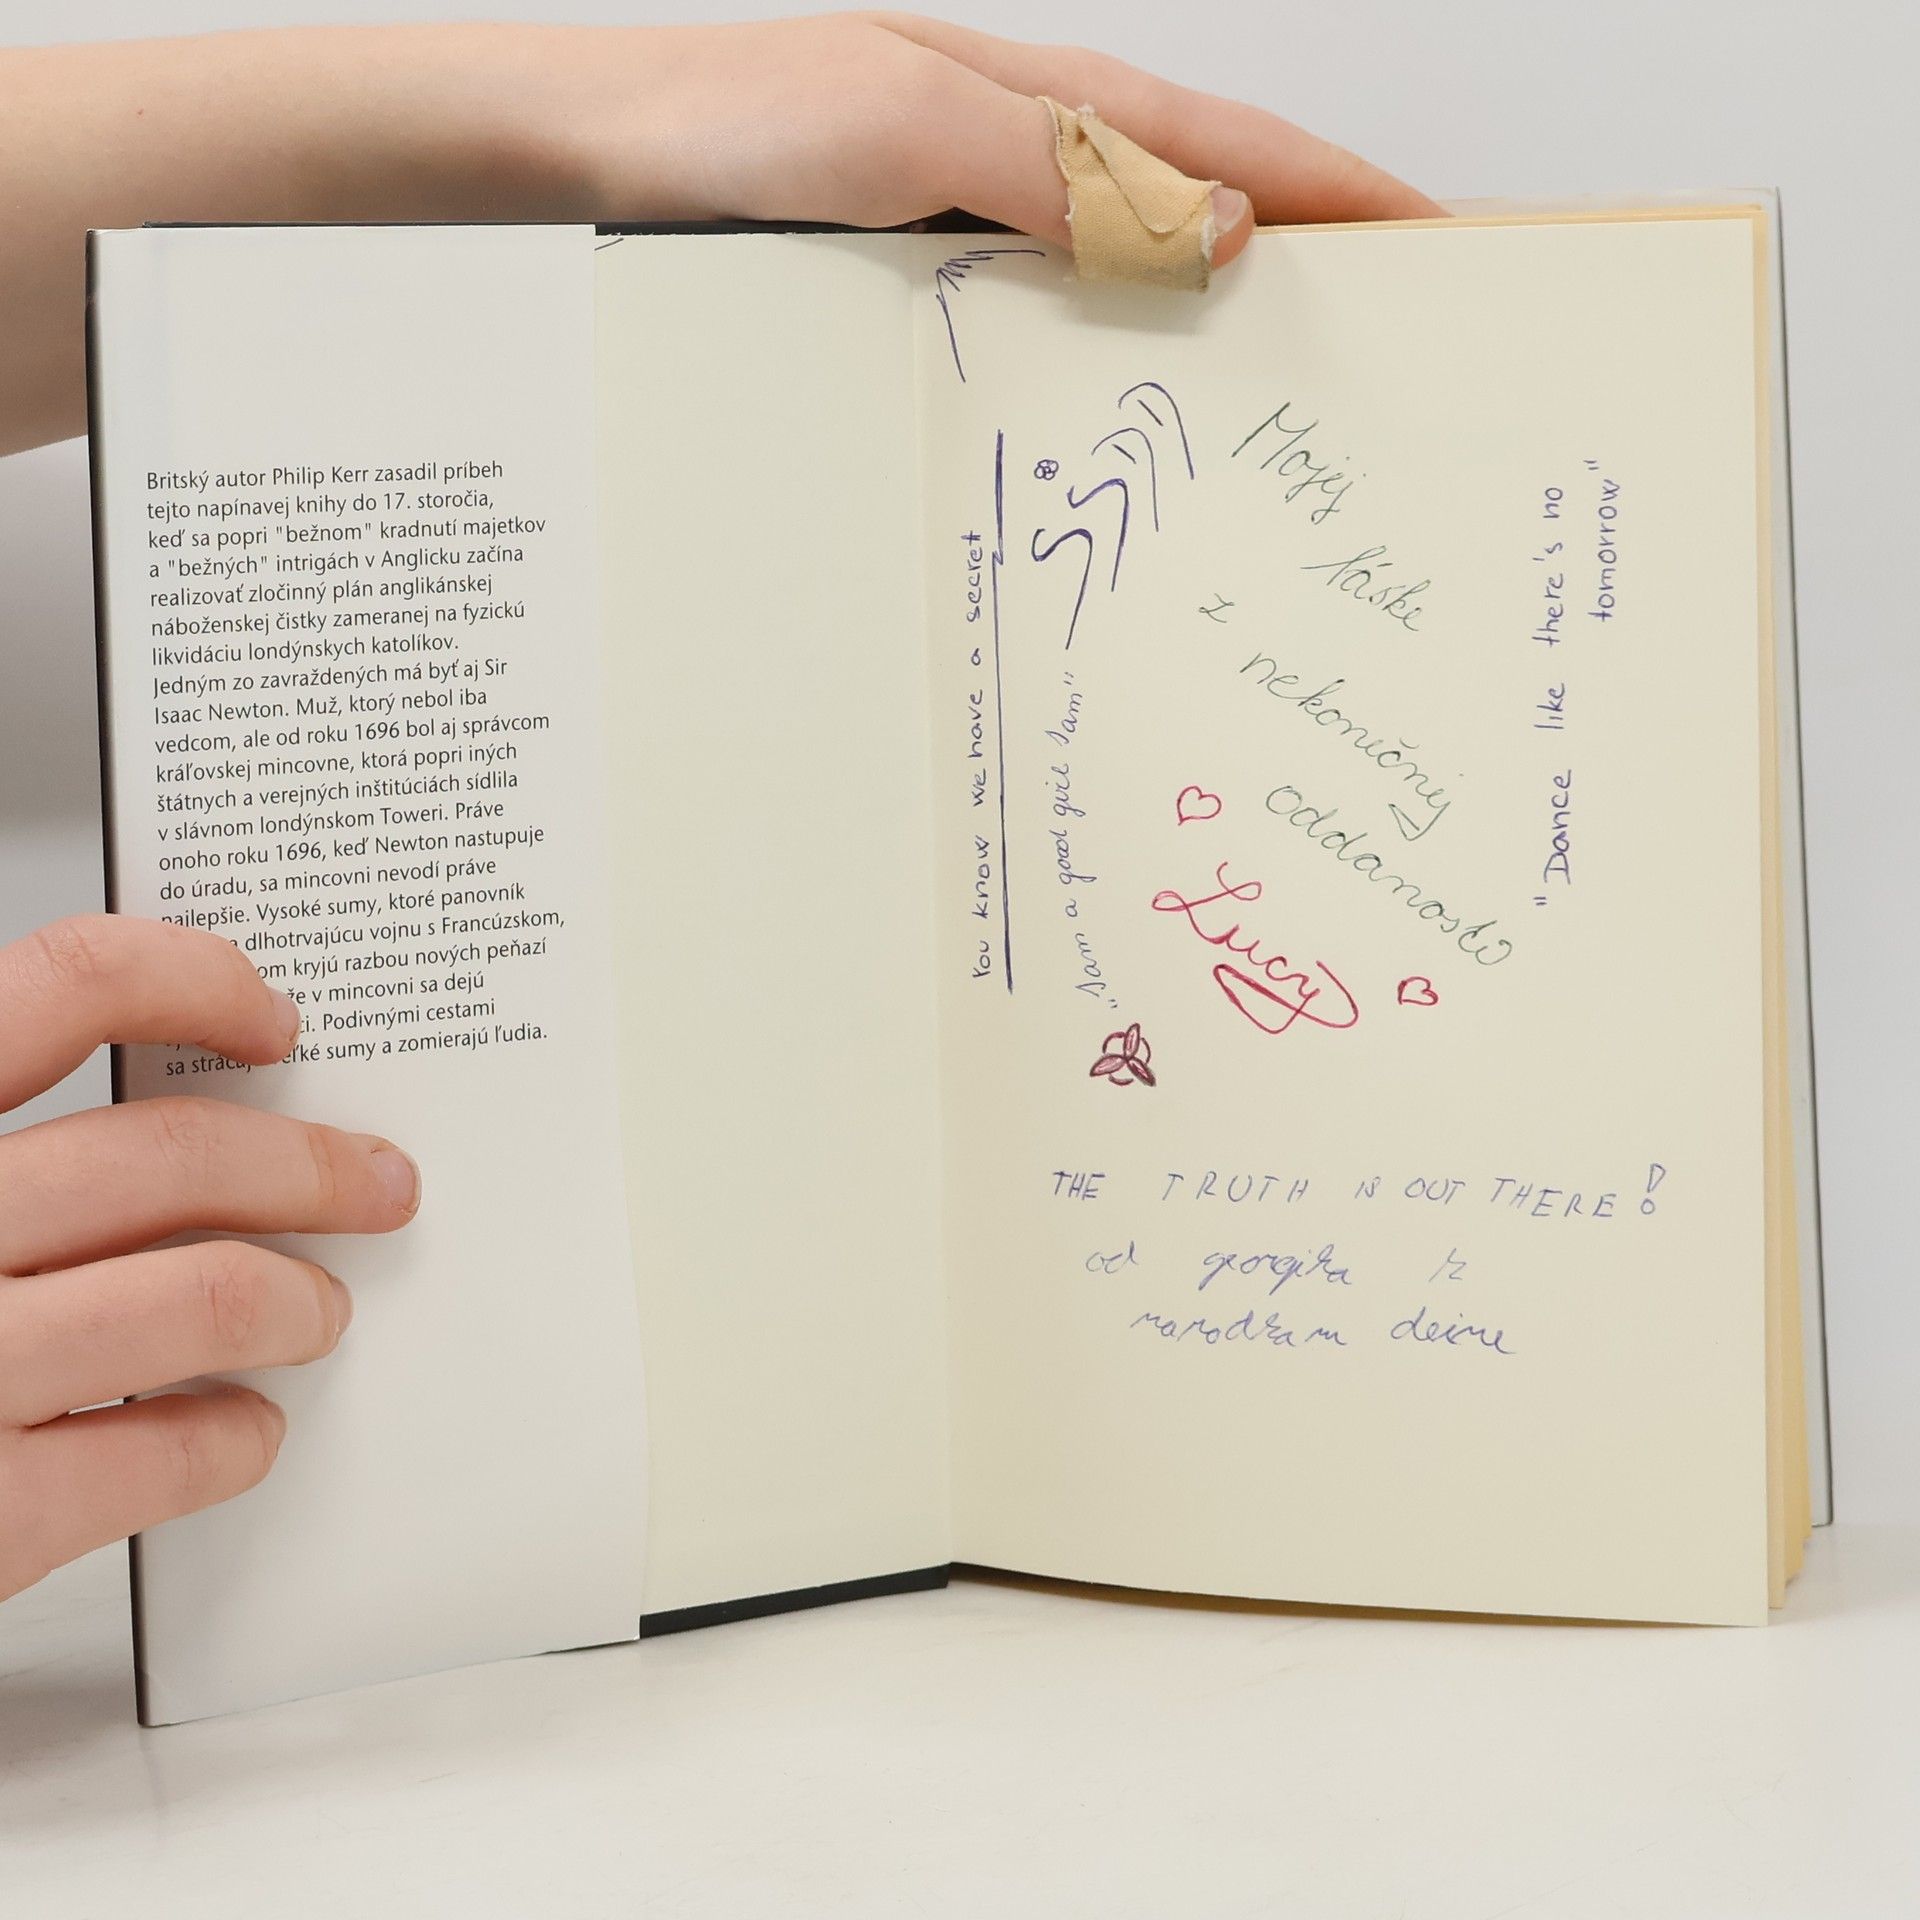 Britský autor Philip Kerr zasadil príbeh
tejto napínavej knihy do 17. storočia,
keď sa popri "bežnom" kradnutí majetkov
a "bežných" intrigách v Anglicku začína
realizovať zločinný plán anglikánskej
náboženskej čistky zameranej na fyzickú
likvidáciu londýnskych katolíkov.
Jedným zo zavraždených má byť aj Sir
Isaac Newton. Muž, ktorý nebol iba
vedcom, ale od roku 1696 bol aj správcom
kráľovskej mincovne, ktorá popri iných
štátnych a verejných inštitúciách sídlila
v slávnom londýnskom Toweri. Práve
onoho roku 1696, keď Newton nastupuje
do úradu, sa mincovni nevodí práve
najlepšie. Vysoké sumy, ktoré panovník
dlhotrvajúcu vojnu s Francúzskom,
kryjú razbou nových peňazí
že v mincovni sa dejú
Podivnými cestami
sa sumy a zomierajú ľudia.
You know we have a secret
"Sam a good girl Sam"
Mojej
láske
z
nekonečnej
oddanosto
Lucy
"Dance like there's no
tomorrow"
THE TRUTH IS OUT THERE!
od